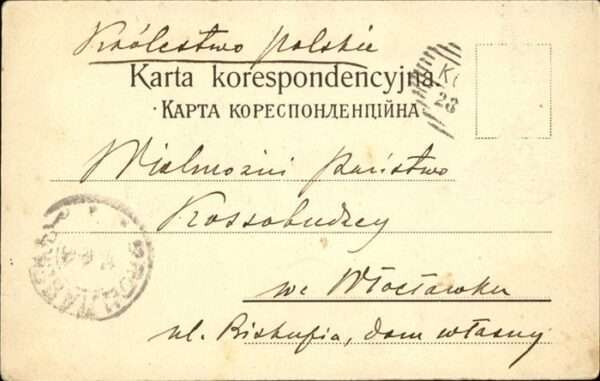 Królestwo polskie
Karta korespondencyjna.
· КАРТА КОРЕСПОНДЕНЦІЙНА
KI
23
Wielmożni państwo
Kossobudzcy
we Włocławku
ul. Biskupia, dom własny